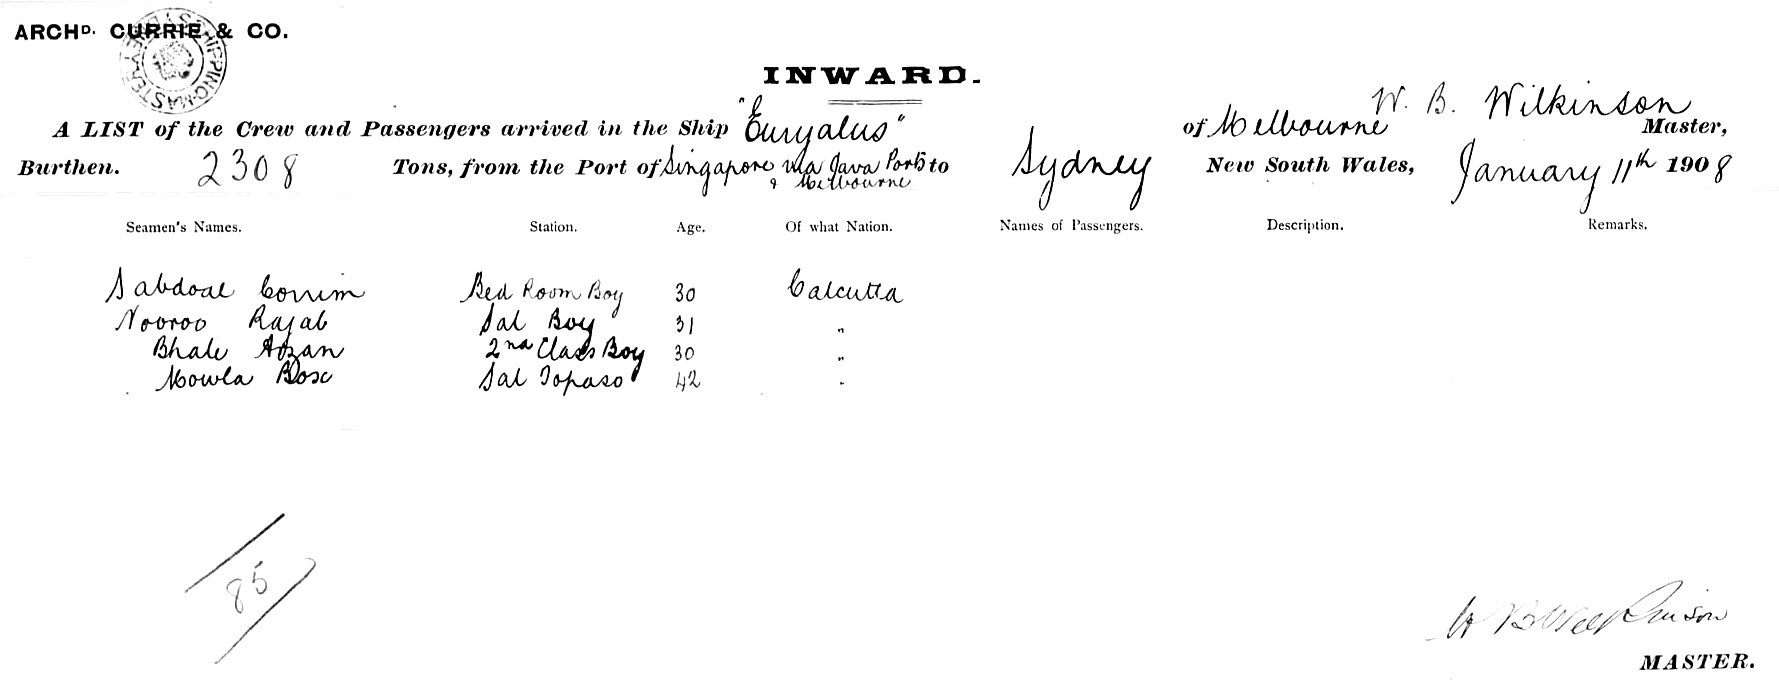 ARCHD. CURRIE & CO.
SHIPPING MASTER SYDNEY
INWARD.
A LIST of the Crew and Passengers arrived in the Ship "Euryalus" of Melbourne W. B. Wilkinson Master,
Burthen. 2308 Tons, from the Port of Singapore via Java Ports & Melbourne to Sydney New South Wales, January 11th 1908
Seamen's Names. Station. Age. Of what Nation. Names of Passengers. Description. Remarks.
Sabdoal Corrim Bed Room Boy 30 Calcutta
Nooroo Rajab Sal Boy 31 "
Bhale Aozan 2nd Class Boy 30 "
Mowla Box Sal Topaso 42 "
85
W B Wilkinson
MASTER.